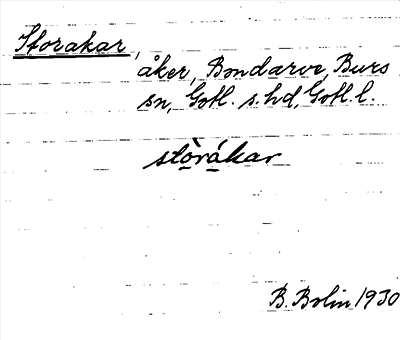 Storakar,
åker, Bondarve, Burs
sn, Gotl. s. hd, Gotl. l.
stòrákar
B. Bolin 1930